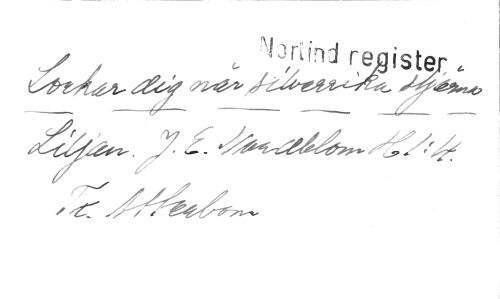 Norlind register
Lockar dig när silverrika stjärna
Liljan. J. E. Nordblom H 1:4.
Tx. Atterbom